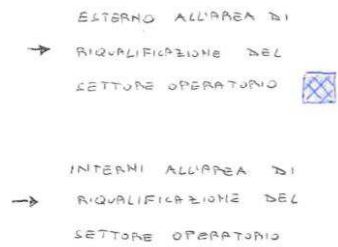 ESTERNO ALL'AREA DI
→ RIQUALIFICAZIONE DEL
SETTORE OPERATORIO
INTERNI ALL'AREA DI
→ RIQUALIFICAZIONE DEL
SETTORE OPERATORIO